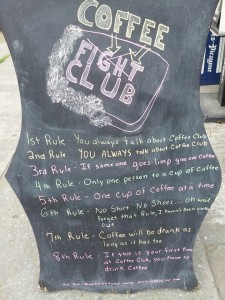 COFFEE
FIGHT
CLUB
1st Rule - You always talk about Coffee Club
2nd Rule - YOU ALWAYS talk about Coffee Club
3rd Rule - If someone goes limp give em Coffee
4th Rule - Only one person to a cup of Coffee
5th Rule - One cup of Coffee at a time
6th Rule - No Shirt No Shoes... oh wait
forget that Rule,
out
7th Rule - Coffee will be drank as
long as it has too
8th Rule - If this is your first time
at Coffee Club, you have to
drink Coffee